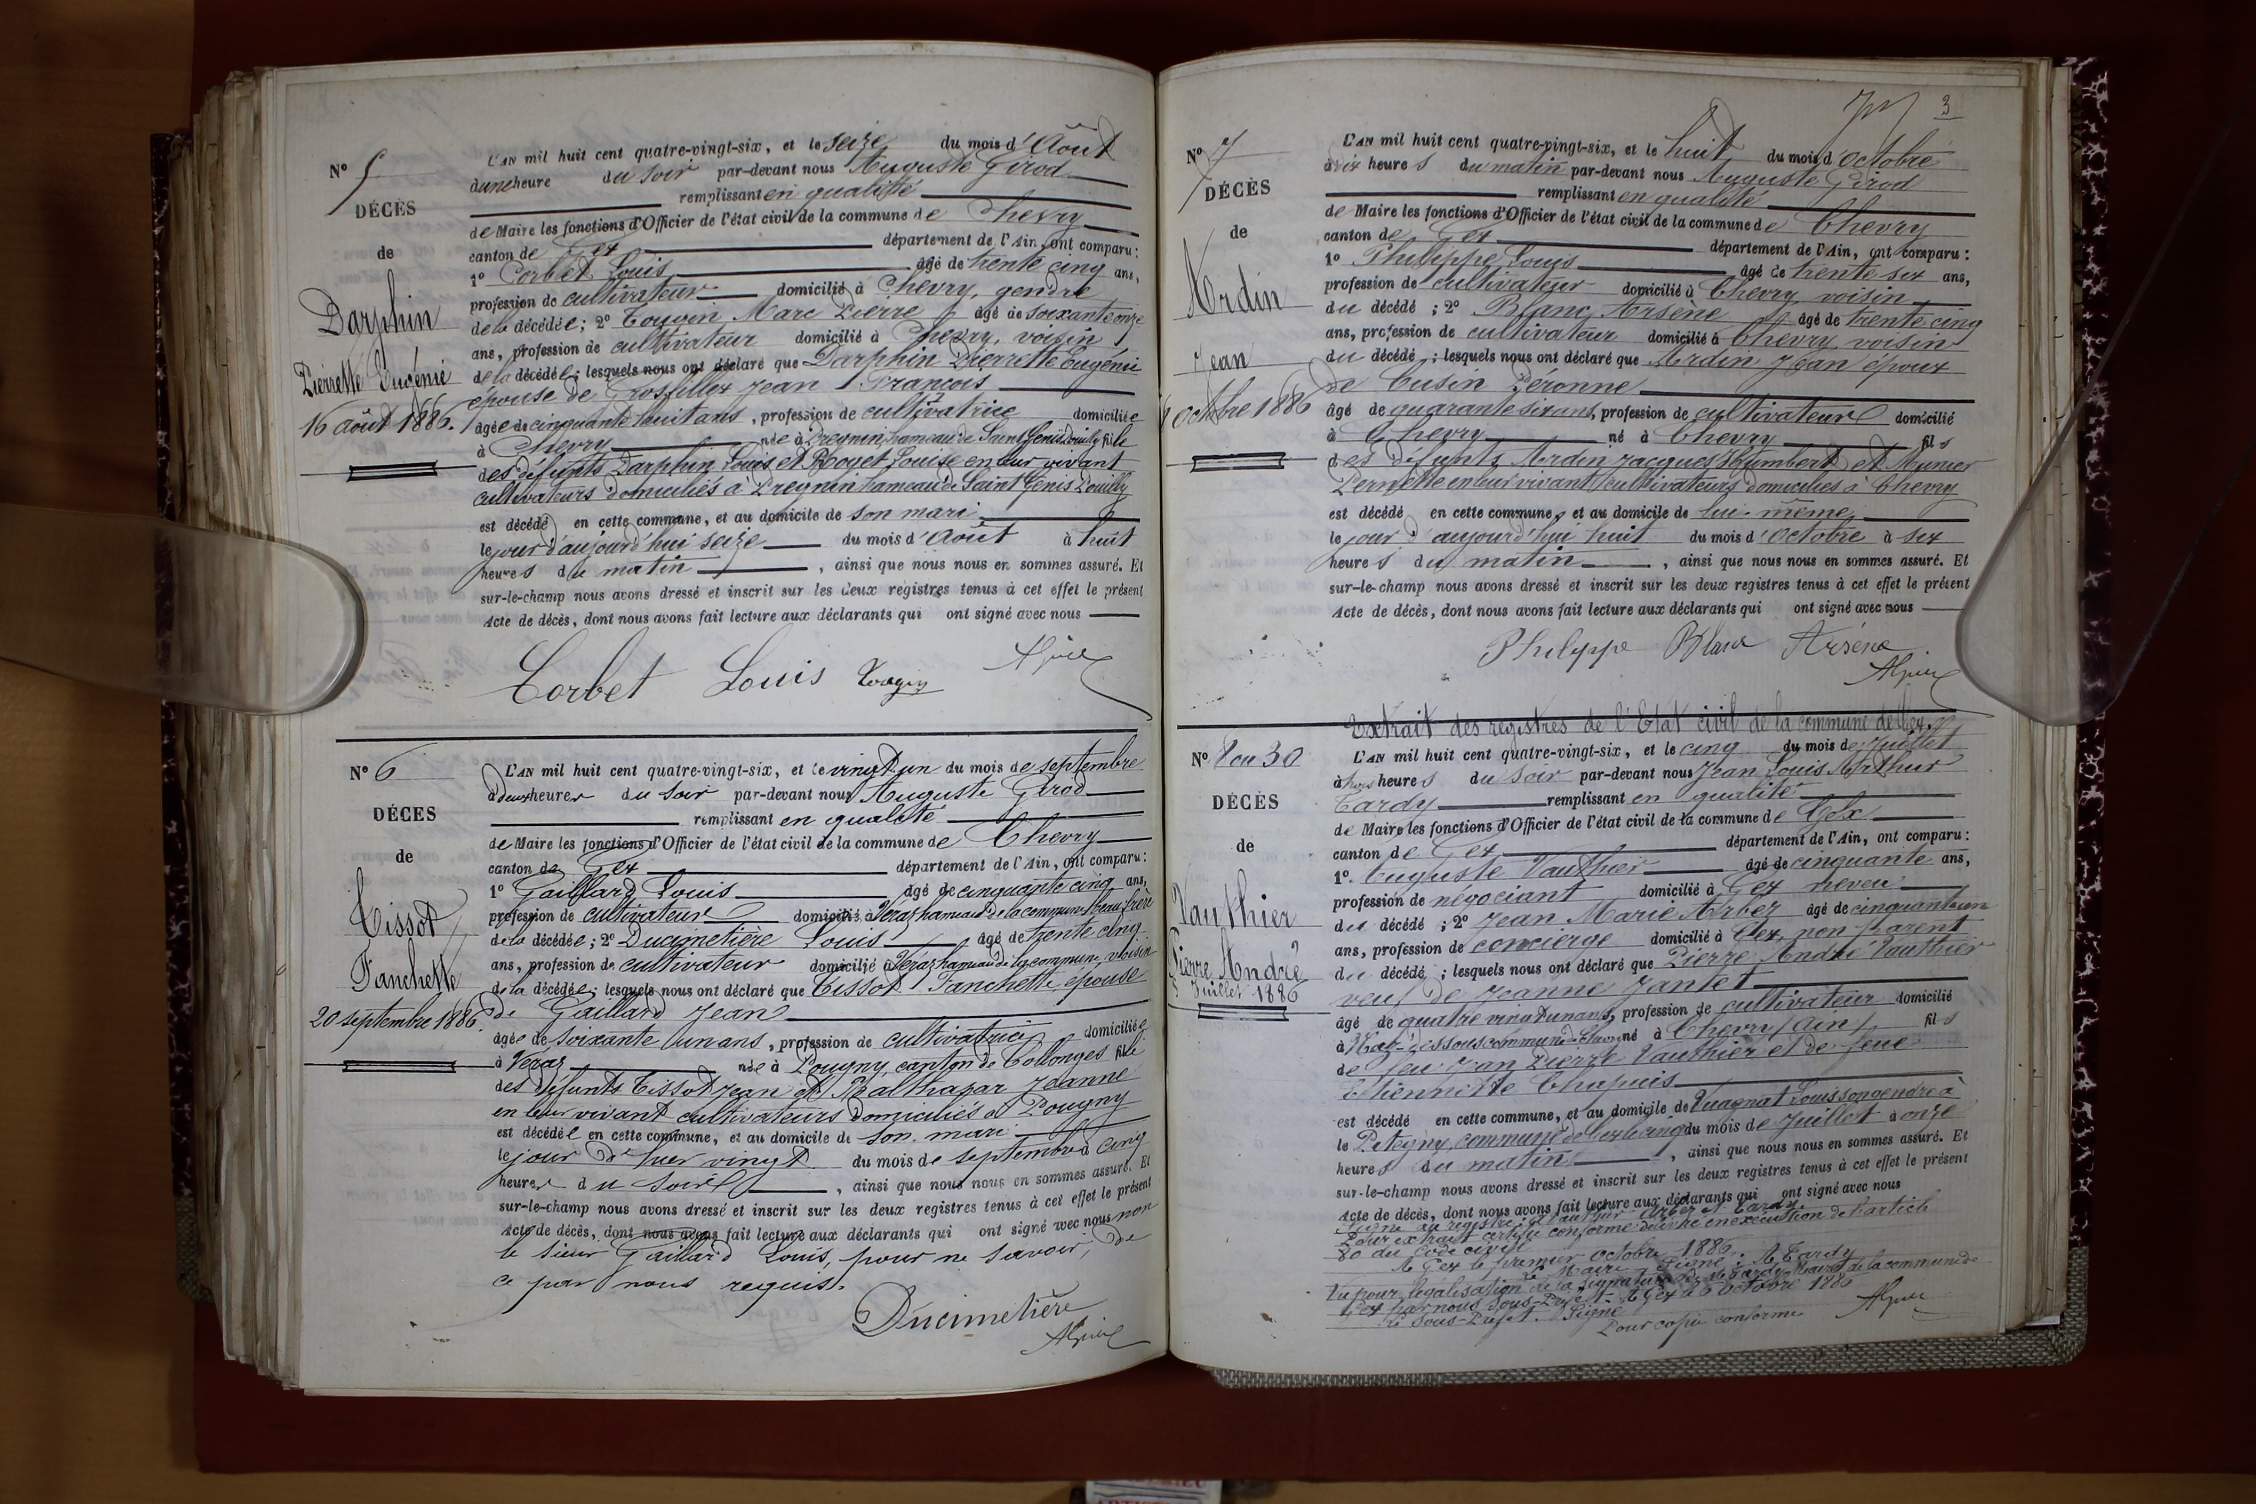 Nº 5
DÉCÈS
de
Darphin
Pierrette Eugénie
16 août 1886.
L'AN mil huit cent quatre-vingt-six, et le seize du mois d'Août
à une heure du soir par-devant nous Auguste Girod
remplissant en qualité
de Maire les fonctions d'Officier de l'état civil de la commune de Chevry
canton de Gex département de l'Ain, ont comparu:
1º Corbet Louis âgé de trente cinq ans,
profession de cultivateur domicilié à Chevry, gendre
de la décédée; 2º Marc Pierre âgé de soixante onze
ans, profession de cultivateur domicilié à Chevry, voisin
de la décédée; lesquels nous ont déclaré que Darphin Pierrette Eugénie
épouse de Grosfillex Jean François
âgée de cinquante huit ans, profession de cultivatrice domiciliée
à Chevry née à Pregnin hameau de Saint Genis Pouilly fille
des défunts Darphin Louis et Royet Louise en leur vivant
cultivateurs domiciliés à Pregnin hameau de Saint Genis Pouilly
est décédé en cette commune, et au domicile de son mari
le jour d'aujourd'hui seize du mois d'Août à huit
heures du matin, ainsi que nous nous en sommes assuré. Et
sur-le-champ nous avons dressé et inscrit sur les deux registres tenus à cet effet le présent
Acte de décès, dont nous avons fait lecture aux déclarants qui ont signé avec nous
Corbet Louis
Nº 6
DÉCES
de
Tissot
Fanchette
20 septembre 1886.
L'AN mil huit cent quatre-vingt-six, et le vingt un du mois de septembre
à deux heures du soir par-devant nous Auguste Girod
remplissant en qualité
de Maire les fonctions d'Officier de l'état civil de la commune de Chevry
canton de Gex département de l'Ain, ont comparu:
1º Gaillard Louis âgé de cinquante cinq ans,
profession de cultivateur domicilié à Véraz hameau de la commune, beau frère
de la décédée; 2º Ducimetière Louis âgé de trente cinq
ans, profession de cultivateur domicilié à Véraz hameau de la commune, voisin
de la décédée; lesquels nous ont déclaré que Tissot Fanchette, épouse
de Gaillard Jean
âgée de soixante un ans, profession de cultivatrice domiciliée
à Veraz née à Pougny canton de Collonges fille
des défunts Tissot Jean et Balthazar Jeanne
en leur vivant cultivateurs domiciliés à Pougny
est décédée en cette commune, et au domicile de son mari
le jour de hier vingt du mois de septembre à cinq
heures du soir, ainsi que nous nous en sommes assuré. Et
sur-le-champ nous avons dressé et inscrit sur les deux registres tenus à cet effet le présent
Acte de décès, dont nous avons fait lecture aux déclarants qui ont signé avec nous non
le sieur Gaillard Louis, pour ne savoir, de
ce par nous requis.
Ducimetière
3
Nº 7
DÉCÈS
de
Ardin
Jean
8 octobre 1886
L'AN mil huit cent quatre-vingt-six, et le huit du mois d'octobre
à dix heures du matin par-devant nous Auguste Girod
remplissant en qualité
de Maire les fonctions d'Officier de l'état civil de la commune de Chevry
canton de Gex département de l'Ain, ont comparu:
1º Philippe Louis âgé de trente six ans,
profession de cultivateur domicilié à Chevry, voisin
du décédé; 2º Blanc Arsène âgé de trente cinq
ans, profession de cultivateur domicilié à Chevry, voisin
du décédé; lesquels nous ont déclaré que Ardin Jean époux
de Cusin Péronne
âgé de quarante six ans, profession de cultivateur domicilié
à Chevry né à Chevry fils
des défunts Ardin Jacques Humbert et Munier
Pernette en leur vivant cultivateurs domiciliés à Chevry
est décédé en cette commune, et au domicile de lui-même
le jour d'aujourd'hui huit du mois d'Octobre à six
heures du matin, ainsi que nous nous en sommes assuré. Et
sur-le-champ nous avons dressé et inscrit sur les deux registres tenus à cet effet le présent
Acte de décès, dont nous avons fait lecture aux déclarants qui ont signé avec nous
Philippe Blanc Arsène
Extrait des registres de l'Etat civil de la commune de Gex.
Nº 8 ou 30
DÉCÈS
de
Vauthier
Pierre André
5 Juillet 1886
L'AN mil huit cent quatre-vingt-six, et le cinq du mois de Juillet
à trois heures du soir par-devant nous Jean Louis Arthur
Tardy remplissant en qualité
de Maire les fonctions d'Officier de l'état civil de la commune de Gex
canton de Gex département de l'Ain, ont comparu:
1º Auguste Vauthier âgé de cinquante ans,
profession de négociant domicilié à Gex neveu
du décédé; 2º Jean Marie Arbez âgé de cinquante un
ans, profession de concierge domicilié à Gex, non parent
du décédé; lesquels nous ont déclaré que Pierre André Vauthier
veuf de Jeanne Jantet
âgé de quatre vingt un ans, profession de cultivateur domicilié
à commune de né à Chevry (Ain) fils
de feu Jean Pierre Vauthier et de feue
Etiennette Chapuis
est décédé en cette commune, et au domicile de Louis son gendre à
le commune de Gex le cinq du mois de Juillet à onze
heures du matin, ainsi que nous nous en sommes assuré. Et
sur-le-champ nous avons dressé et inscrit sur les deux registres tenus à cet effet le présent
Acte de décès, dont nous avons fait lecture aux déclarants qui ont signé avec nous
Signé au registre: A Vauthier Arbez et Tardy
Pour extrait certifié conforme délivré en exécution de l'article
80 du Code civil
A Gex le premier octobre 1886.
Le Maire, Signé: A Tardy
Vu pour légalisation de la signature de M Tardy Maire de la commune de
Gex par nous Sous-Préfet. A Gex le 6 octobre 1886
Le Sous-Préfet. Signé
Pour copie conforme